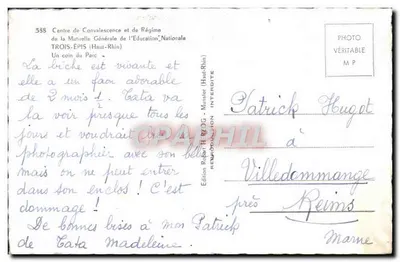 585 Centre de Convalescence et de Régime
de la Mutuelle Générale de l'Education Nationale
TROIS-EPIS (Haut-Rhin)
Un coin du Parc
La biche est vivante et
elle a un faon adorable
de 2 mois ! Tata va
la voir presque tous les
jours et voudrait la
photographier avec son bébé
mais on ne peut entrer
dans son enclos ! C'est
dommage !
De bonnes bises à mon Patrick
de Tata Madeleine.
Edition RHIN Munster (Haut-Rhin)
REPRODUCTION INTERDITE
PHOTO
VÉRITABLE
M P
Patrick Hugot
à
Villedommange
près Reims
Marne